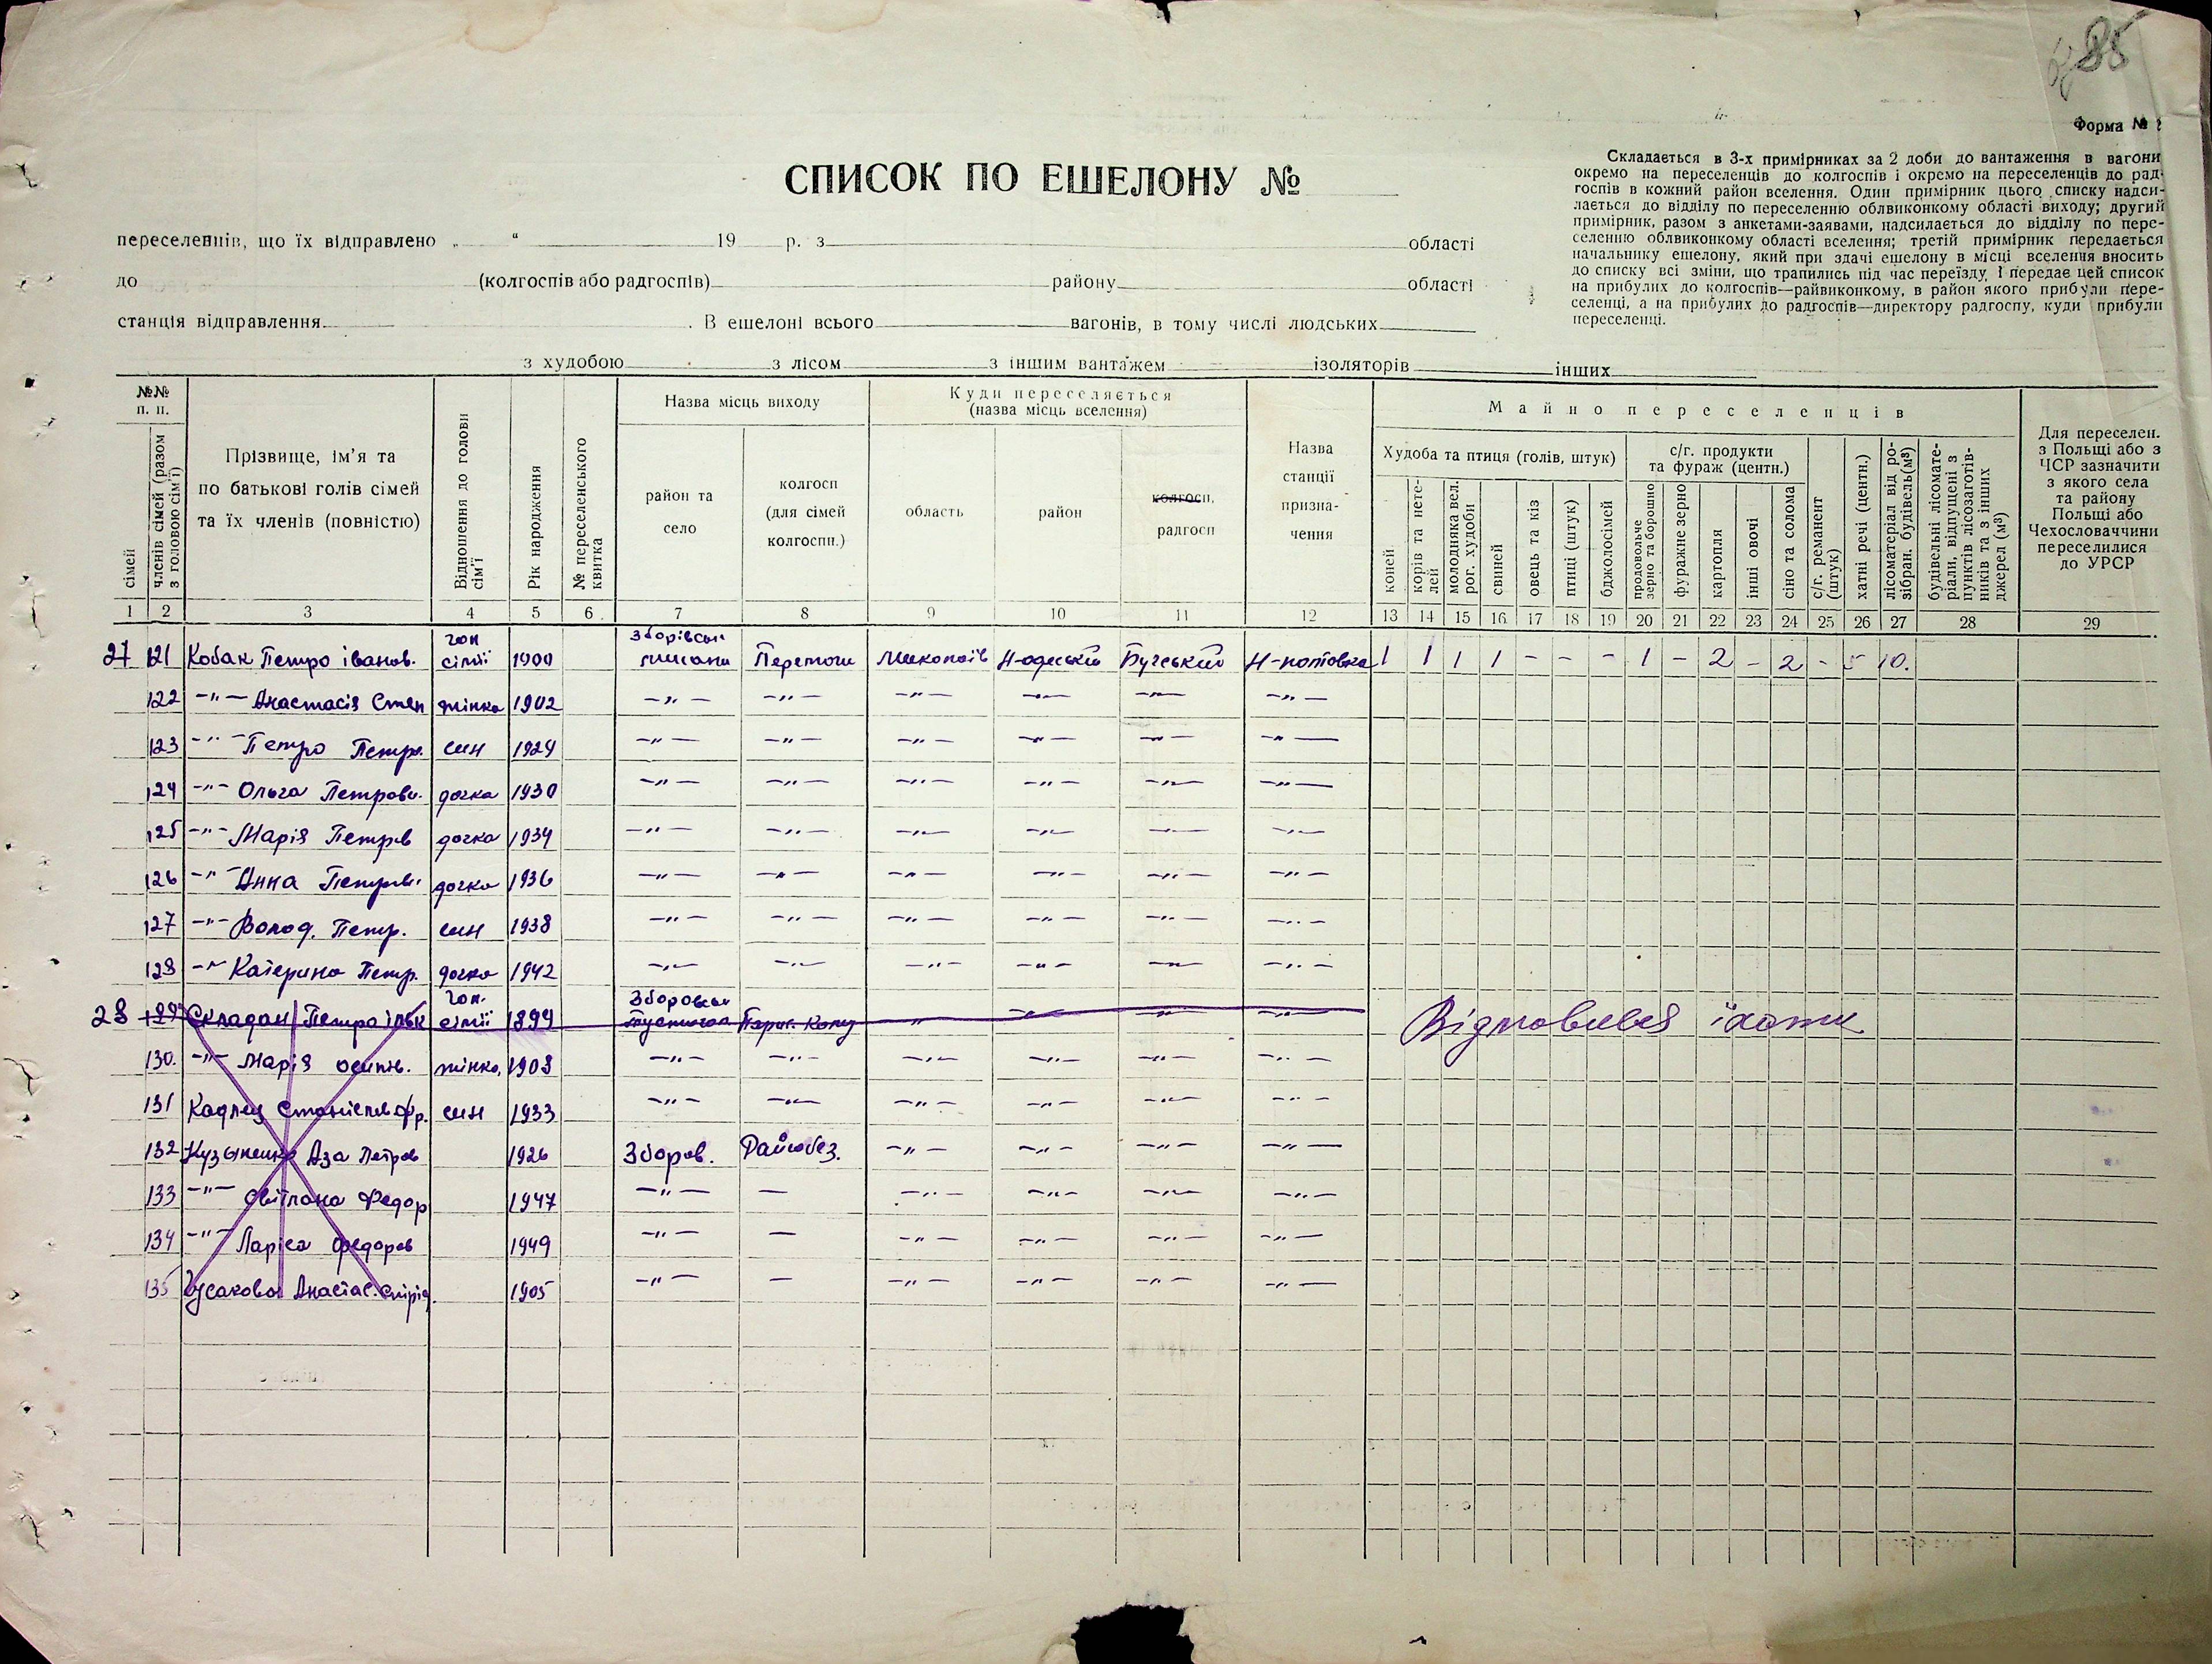 85
Форма №
СПИСОК ПО ЕШЕЛОНУ №
Складається в 3-х примірниках за 2 доби до вантаження в вагони
окремо на переселенців до колгоспів і окремо на переселенців до рад-
госпів в кожний район вселення. Один примірник цього списку надси-
лається до відділу по переселенню облвиконкому області виходу; другий
примірник, разом з анкетами-заявами, надсилається до відділу по пере-
селенню облвиконкому області вселення; третій примірник передається
начальнику ешелону, який при здачі ешелону в місці вселення вносить
до списку всі зміни, що трапились під час переїзду, і передає цей список
на прибулих до колгоспів—райвиконкому, в район якого прибули пере-
селенці, а на прибулих до радгоспів—директору радгоспу, куди прибули
переселенці.
переселенців, що їх відправлено „ “ 19 р. з області
до (колгоспів або радгоспів) району області
станція відправлення . В ешелоні всього вагонів, в тому числі людських
з худобою з лісом з іншим вантажем ізоляторів інших
№№ п. п.
сімей
членів сімей (разом з головою сім'ї)
Прізвище, ім'я та по батькові голів сімей та їх членів (повністю)
Відношення до голови сім'ї
Рік народження
№ переселенського квитка
Назва місць виходу
район та село
колгосп (для сімей колгоспн.)
Куди переселяється (назва місць вселення)
область
район
колгосп, радгосп
Назва станції призначення
Майно переселенців
Худоба та птиця (голів, штук)
коней
корів та нетелей
молодняка вел. рог. худоби
свиней
овець та кіз
птиці (штук)
бджолосімей
с/г. продукти та фураж (центн.)
продовольче зерно та борошно
фуражне зерно
картопля
інші овочі
сіно та солома
с/г. реманент (штук)
хатні речі (центн.)
лісоматеріал від розібран. будівель (м³)
будівельні лісоматеріали, відпущені з пунктів лісозаготівників та з інших джерел (м³)
Для переселен. з Польщі або з ЧСР зазначити з якого села та району Польщі або Чехословаччини переселилися до УРСР
1 2 3 4 5 6 7 8 9 10 11 12 13 14 15 16 17 18 19 20 21 22 23 24 25 26 27 28 29
27 121 Кобак Петро Іванов. гол сімїі 1900 Зборівськ Перемоги Миколаїв Н-одеський Бугський 1 1 1 1 - - - 1 - 2 - 2 - 5 10.
122 -"- Анастасія Степ жінка 1902 -"- -"- -"- -"- -"- -"-
123 -"- Петро Петр. син 1929 -"- -"- -"- -"- -"- -"-
124 -"- Ольга Петров. дочка 1930 -"- -"- -"- -"- -"- -"-
125 -"- Марія Петров дочка 1934 -"- -"- -"- -"- -"- -"-
126 -"- Анна Петрів. дочка 1936 -"- -"- -"- -"- -"- -"-
127 -"- Волод. Петр. син 1938 -"- -"- -"- -"- -"- -"-
128 -"- Катерина Петр. дочка 1942 -"- -"- -"- -"- -"- -"-
28 129 Складан Петро гол. сімїі 1899 Зборовськ -"- -"- -"- -"- Відмовився їхати
130. -"- Марія Осипів. жінка 1908 -"- -"- -"- -"- -"- -"-
131 син 1933 -"- -"- -"- -"- -"- -"-
132 Аза Петров 1926 Зборов. -"- -"- -"- -"-
133 -"- Світлана Федор 1947 -"- — -"- -"- -"- -"-
134 -"- Ларіса Федоров 1949 -"- — -"- -"- -"- -"-
135 Гусакова Анастас. Спірід. 1905 -"- — -"- -"- -"- -"-